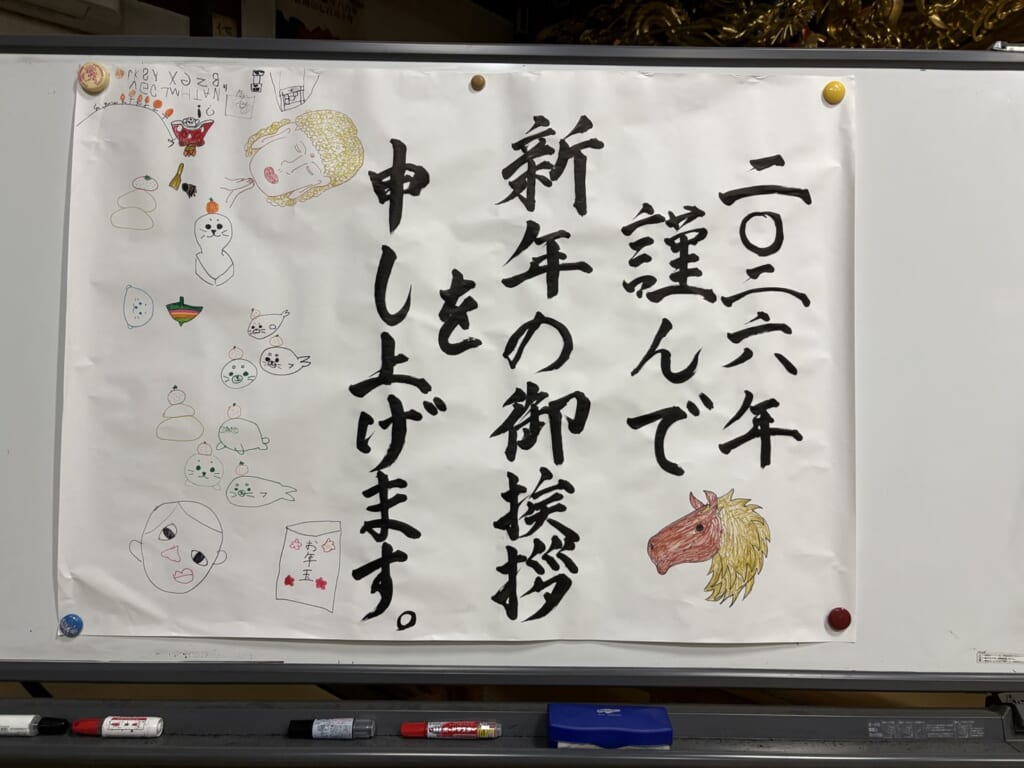 二〇二六年
謹んで
新年の御挨拶
を
申し上げます。
お年玉